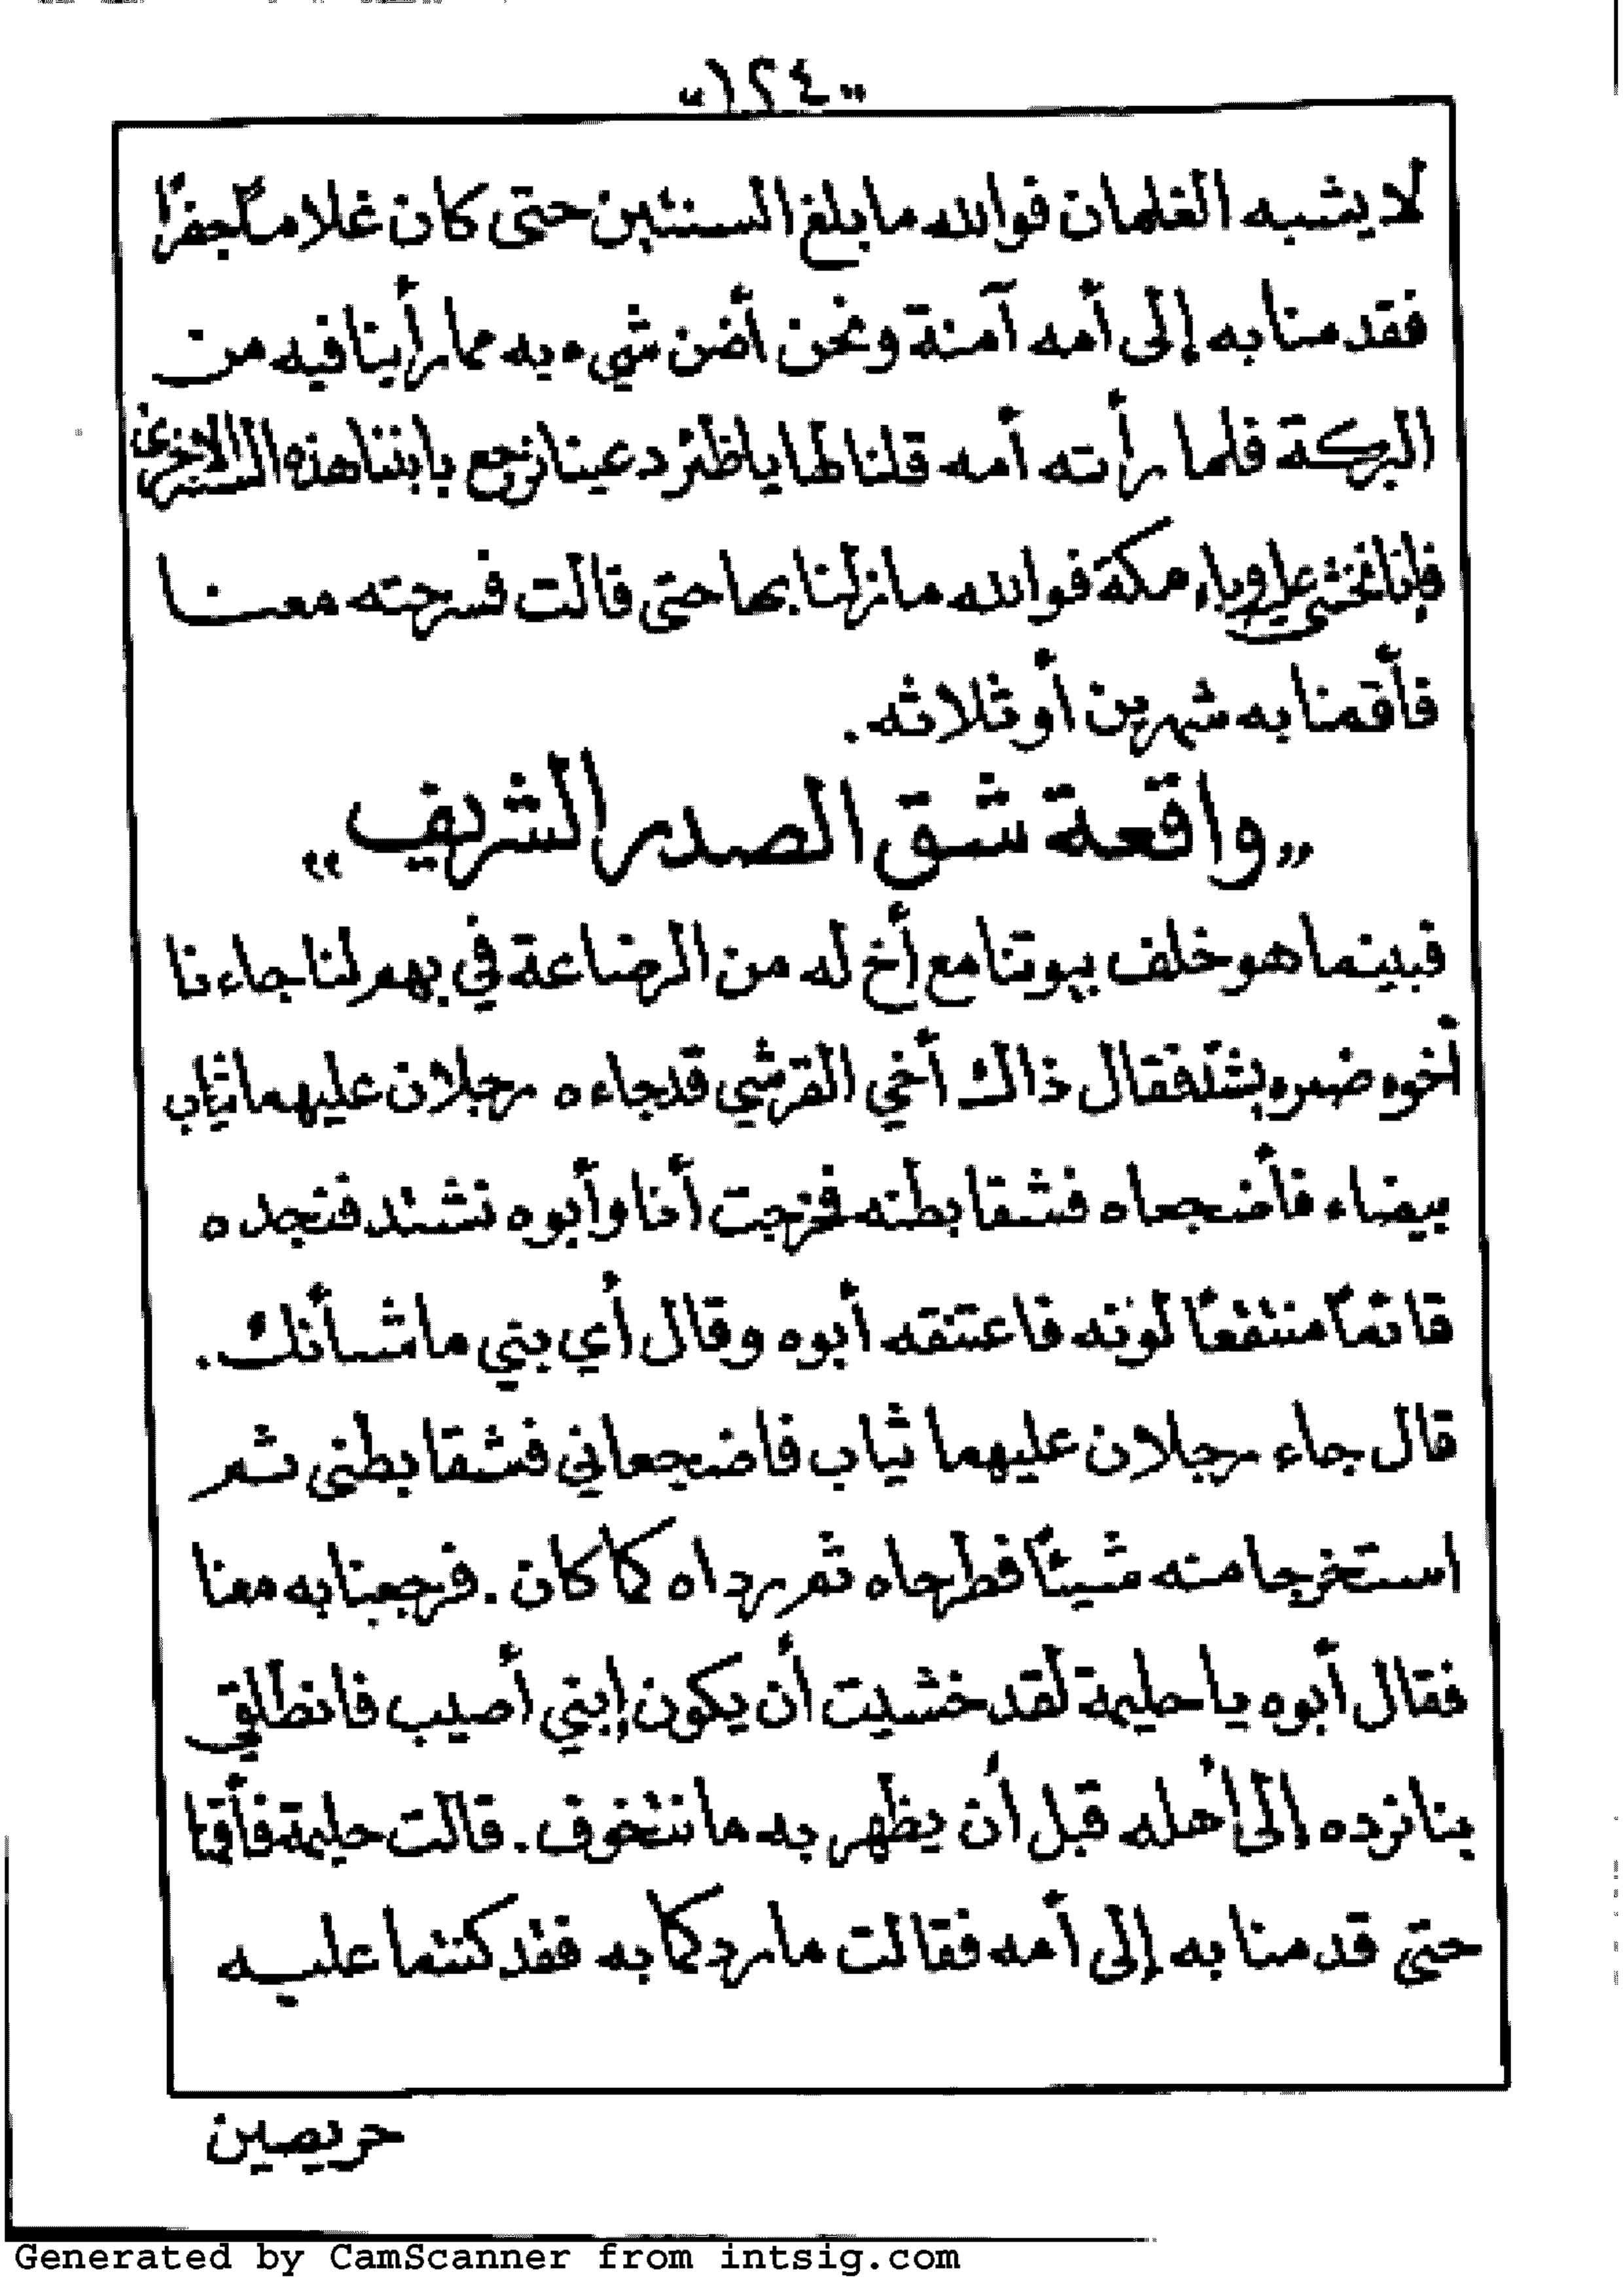 "١٢٤"
لا يشبه الغلمان فوالله ما بلغ السنتين حتى كان غلاماً جفراً
فقدمنا به إلى أمه آمنة ونحن أضن شيء به مما رأينا فيه من
البركة فلما رأته أمه قلنا لها يا ظئر دعينا نرجع بابننا هذه السنة الأخرى
فإنا نخشى عليه وباء مكة فوالله ما زلنا بها حتى قالت فسرحته معنا
فأقمنا به شهرين أو ثلاثه.
"واقعة شق الصدر الشريف"
فبينما هو خلف بيوتنا مع أخ له من الرضاعة في بهم لنا جاءنا
أخوه ضمره يشتد فقال ذاك أخي القرشي قد جاءه رجلان عليهما ثياب
بيضاء فأضجعاه فشقا بطنه فخرجت أنا وأبوه نشتد فنجده
قائماً منتقعاً لونه فاعتنقه أبوه وقال أي بني ما شأنك.
قال جاء رجلان عليهما ثياب فاضجعاني فشقا بطني ثم
استخرجا منه شيئاً فطرحاه ثم رداه كما كان. فرجعنا به معنا
فقال أبوه يا حليمة لقد خشيت أن يكون إبني أصيب فانطلقي
بنا نرده إلى أهله قبل أن يظهر به ما نتخوف. قالت حليمة فأقمنا
حتى قدمنا به إلى أمه فقالت ما ردكما به فقد كنتما عليه
حريصين
Generated by CamScanner from intsig.com